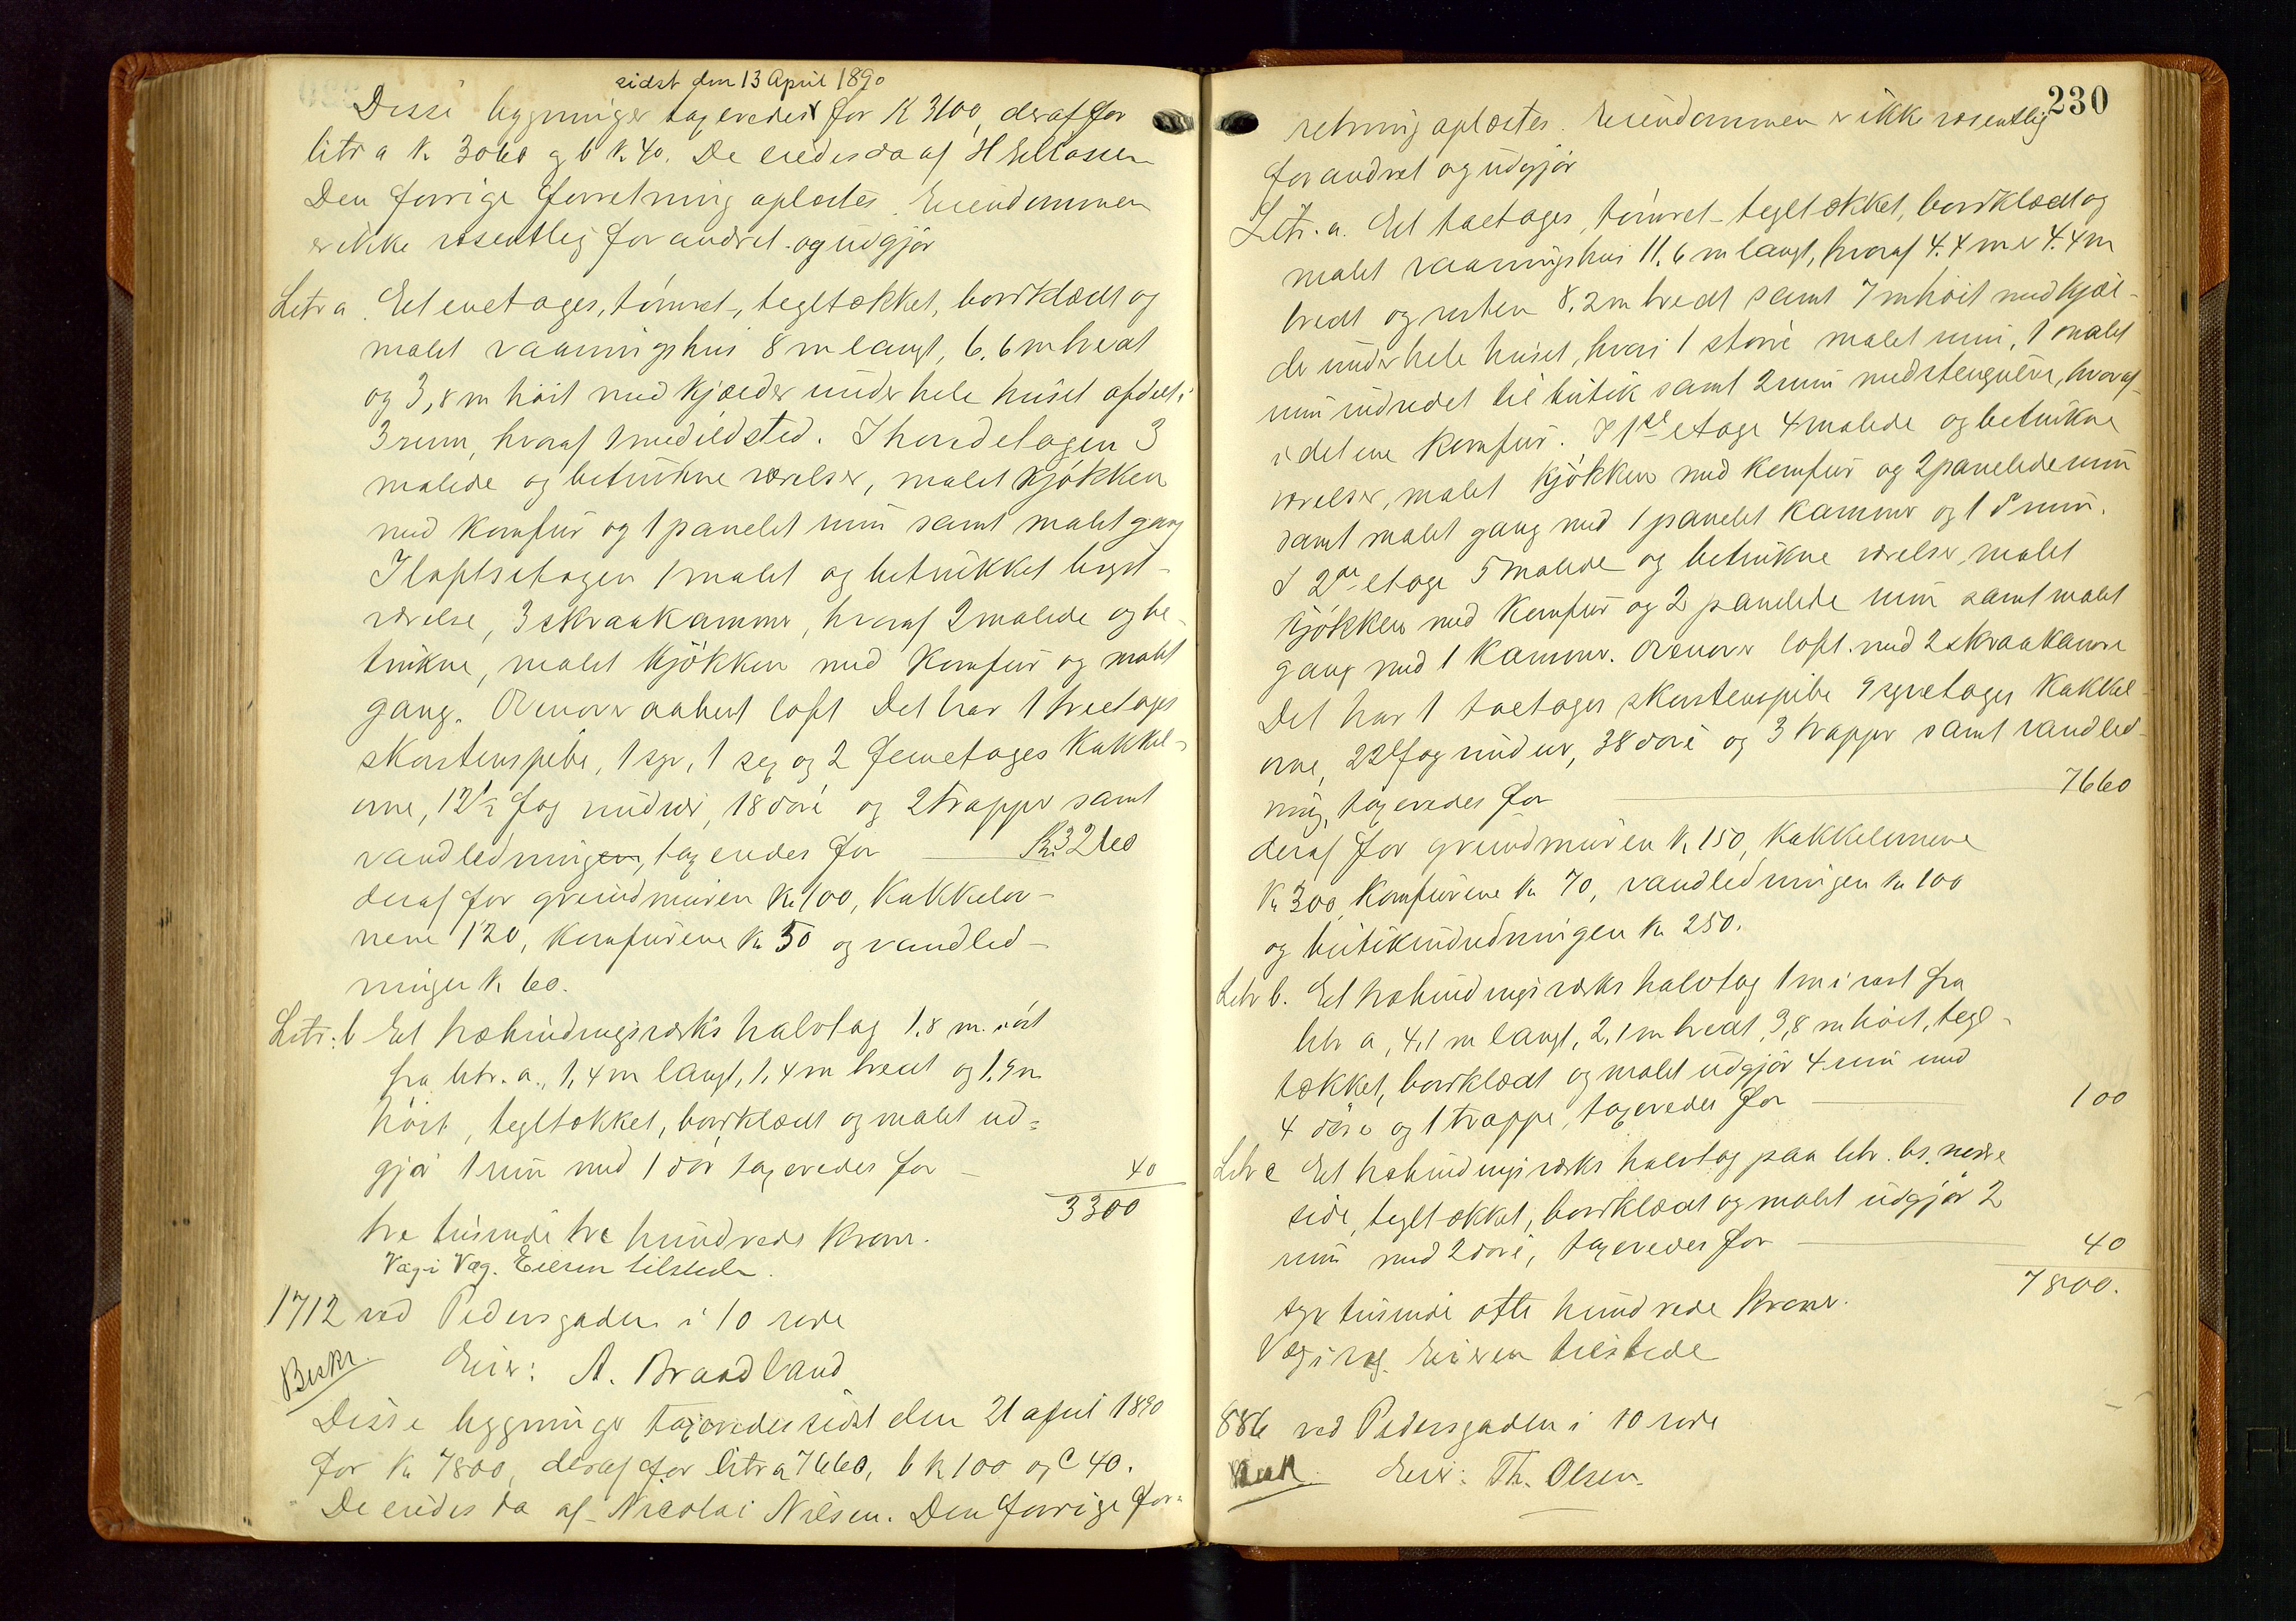 sidst den 13 April 1890
Disse bygninger taxeredes for K 3100, deraf for
litr a Kr. 3060 og b Kr. 40. De eiedes da af H Eliassen
Den forrige forretning oplæstes. Eiendommen
er ikke væsentlig forandret og udgjør
Litr a. Et enetages, tømret, tegltækket, bordklædt og
malet vaaningshus 8 m langt, 6,6 m bredt
og 3,8 m høit med kjælder under hele huset afdelt i
3 rum, hvoraf 1 med ildsted. I hovedetagen 3
malede og betrukne værelser, malet kjøkken
med komfur og 1 panelet rum samt malet gang
I loftsetagen 1 malet og betrukket kvist-
værelse, 3 skraakammer, hvoraf 2 malede og be-
trukne, malet kjøkken med komfur og malet
gang. Ovenover aabent loft Det har 1 treetages
skorstenspibe, 1 syv, 1 sex og 2 femetages kakkel-
ovne, 12½ fag vinduer, 18 døre og 2 trapper samt
vandledningen, taxeredes for Kr. 3260
deraf for grundmuren Kr. 100, kakkelov-
nene 120, komfurene Kr. 50 og vandled-
ningen Kr. 60.
Litr. b Et udbindingsværks halvtag 1,8 m. øst
fra litr. a., 1,4 m langt, 1,4 m bredt og 1,9 m
høit, tegltækket, bordklædt og malet ud=
gjør 1 rum med 1 dør taxeredes for 40
3300
tre tusinde tre hundrede kroner.
Væg i Væg. Eieren tilstede.
1712 ved Pedersgaden i 10 rode
Beskr. Eier: A. Braadland
Disse bygninger taxeredes sidst den 21 april 1890
for Kr 7800, deraf for litr a 7660, b K 100 og C 40.
De eiedes da af Nicolai Nilsen. Den forrige for=
230
retning oplæstes. Eiendommen er ikke væsentlig
forandret og udgjør
Litr. a. Et toetages, tømret tegltækket, bordklædt og
malet vaaningshus 11,6 m langt, hvoraf 4.4 m er 4.4 m
bredt og resten 8,2 m bredt samt 7 m høit med kjæl-
der under hele huset, hvori 1 større malet rum, 1 malet
rum indredet til butik samt 2 rum med stengulv, hvoraf
i det ene komfur. I 1ste etage 4 malede og betrukne
værelser, malet kjøkken med komfur og 2 panelede rum
samt malet gang med 1 panelet kammer og 1 do rum.
I 2den etage 5 malede og betrukne værelser, malet
kjøkken med komfur og 2 panelede rum samt malet
gang med 1 kammer. Ovenover loft med 2 skraakamre
Det har 1 toetages skorstenspibe 9 syvetages kakkel-
ovne, 22½ fag vinduer, 38 døre og 3 trapper samt vandled-
ning, taxeredes for 7660
deraf for grundmuren K. 150, kakkelovnene
Kr 300, komfurene Kr 70, vandledningen Kr 100
og butikindredningen Kr 250.
Litr b. Et udbindingsværks halvtag 1 m i vest fra
litr a, 4,1 m langt, 2,1 m bredt, 3,8 m høit, tegl-
tækket, bordklædt og malet udgjør 4 rum med
4 døre og 1 trappe, taxeredes for 100
Litr c Et udbindingsværks halvtag paa litr. bs. nedre
side, tegltækket, bordklædt og malet udgjør 2
rum med 2 døre, taxeredes for 40
7800.
syv tusinde otte hundrede kroner.
Væg i væg. Eieren tilstede
886 ved Pedersgaden i 10 rode
Eier: Th. Olsen.